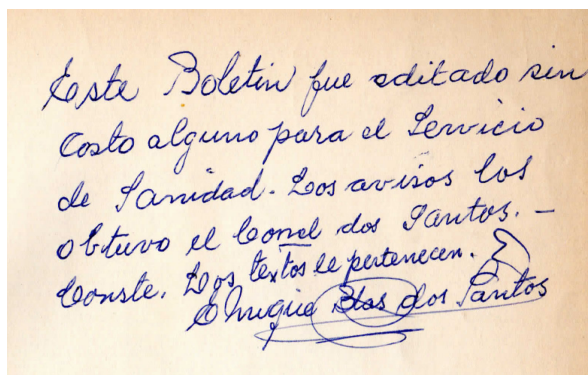 Este Boletin fue editado sin
costo alguno para el Servicio
de Sanidad. Los avisos los
obtuvo el Conel dos Santos. -
Conste. Los textos le pertenecen.
Enrique Blas dos Santos